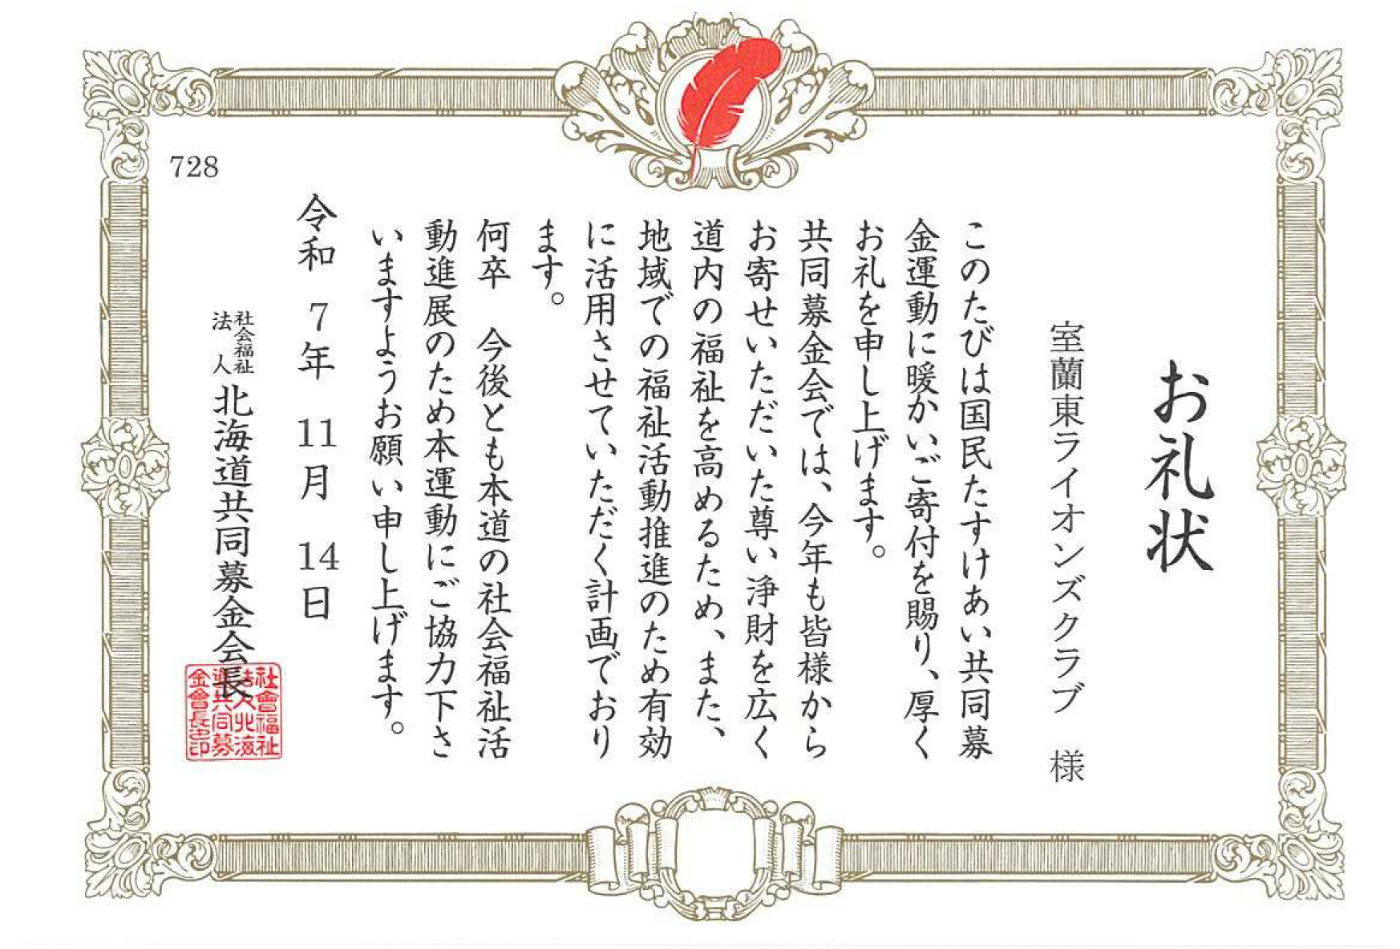 お礼状
室蘭東ライオンズクラブ 様
このたびは国民たすけあい共同募
金運動に暖かいご寄付を賜り、厚く
お礼を申し上げます。
共同募金会では、今年も皆様から
お寄せいただいた尊い浄財を広く
道内の福祉を高めるため、また、
地域での福祉活動推進のため有効
に活用させていただく計画でおり
ます。
何卒 今後とも本道の社会福祉活
動進展のため本運動にご協力下さ
いますようお願い申し上げます。
令和 7年 11月 14日
社会福祉法人 北海道共同募金会長
社會福祉
法人北海
道共同募
金會長之印
728